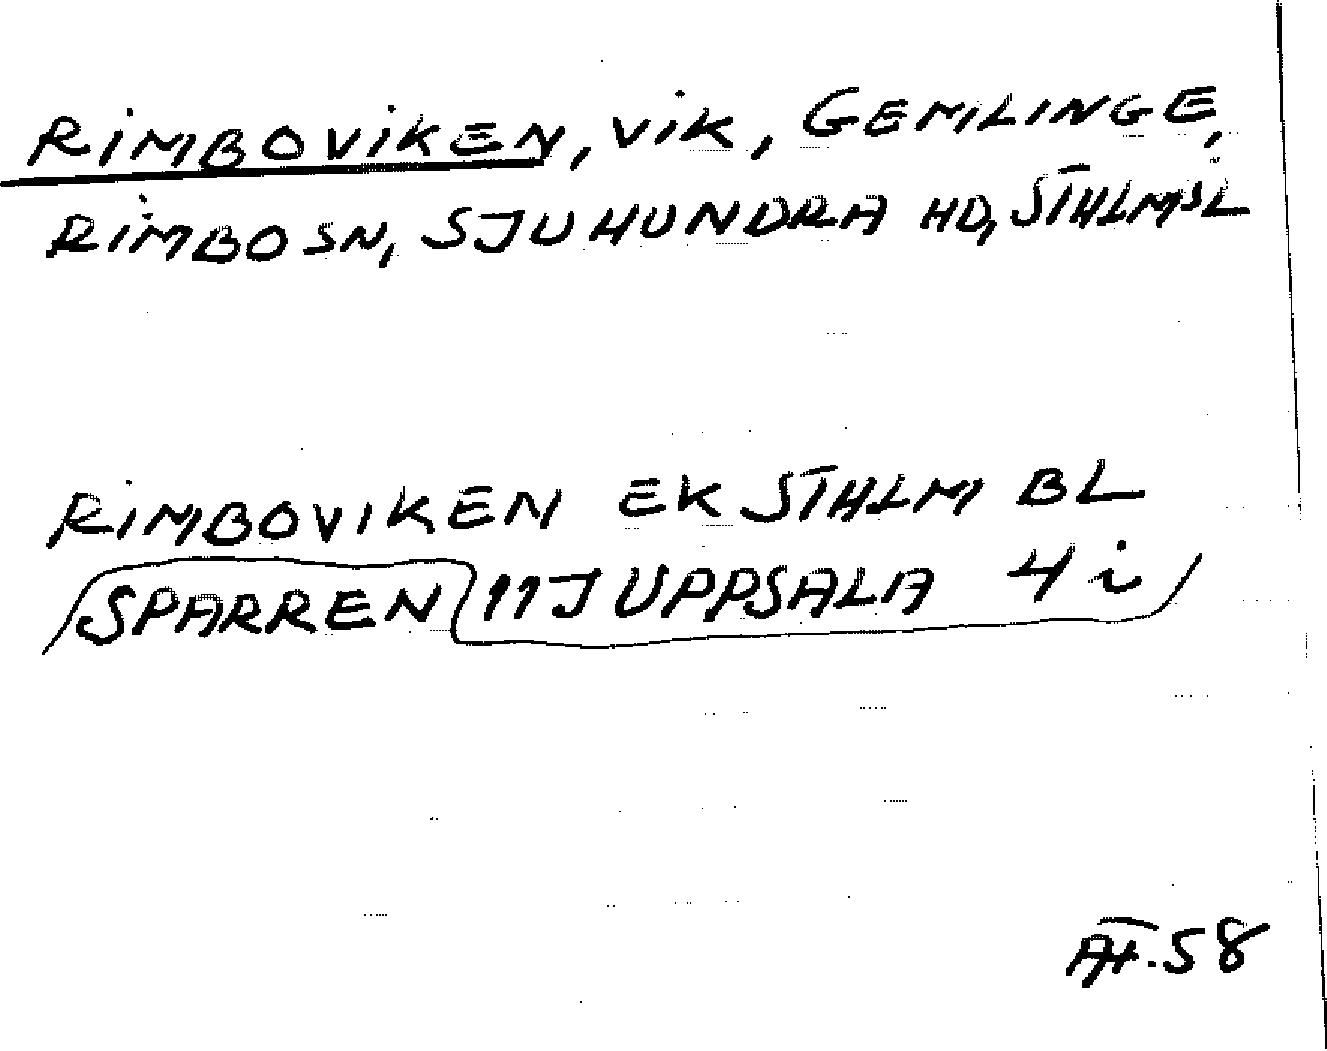 RIMBOVIKEN, VIK, GEMLINGE,
RIMBO SN, SJUHUNDRA HD, STHLMS L
RIMBOVIKEN EK STHLM BL
SPARREN 11J UPPSALA 4 i
58